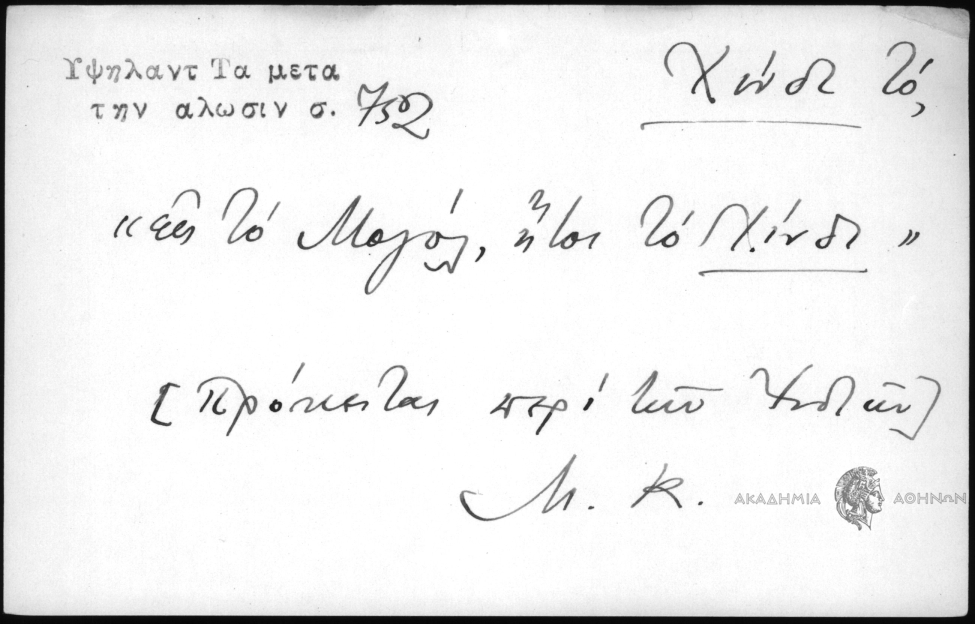 Υψηλαντ Τα μετα
την αλωσιν σ. 752
Χίνδι τό,
«εἰς τό Μογόλ, ἤτοι τό Χίνδι»
[Πρόκειται περί τῶν Ἰνδιῶν]
Μ. Κ.
ΑΚΑΔΗΜΙΑ ΑΘΗΝΩΝ